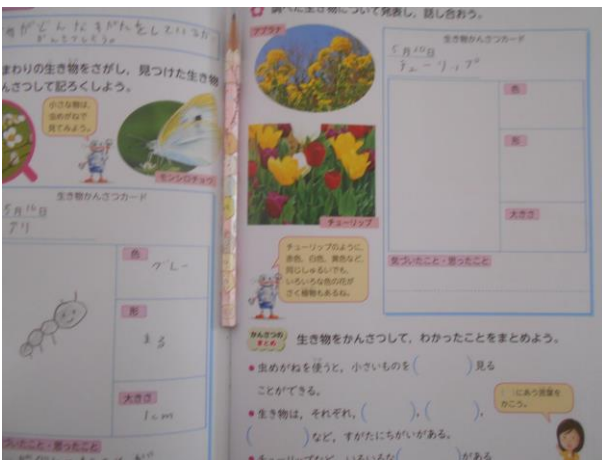 まわりの生き物をさがし，見つけた生き物
んさつして記ろくしよう。
小さな物は，
虫めがねで
見てみよう。
モンシロチョウ
生き物かんさつカード
5月10日
アリ
色
グレー
形
まる
大きさ
1cm
気づいたこと・思ったこと
調べた生き物について発表し，話し合おう。
アブラナ
チューリップ
チューリップのように，
赤色，白色，黄色など，
同じしゅるいでも，
いろいろな色の花が
さく植物もあるね。
生き物かんさつカード
5月10日
チューリップ
色
形
大きさ
気づいたこと・思ったこと
かんさつの
まとめ
生き物をかんさつして，わかったことをまとめよう。
●虫めがねを使うと，小さいものを（　　　）見る
ことができる。
●生き物は，それぞれ，（　　　），（　　　），
（　　　）など，すがたにちがいがある。
●チューリップなど，いろいろな（　　　）がある
（　）にあう言葉を
かこう。